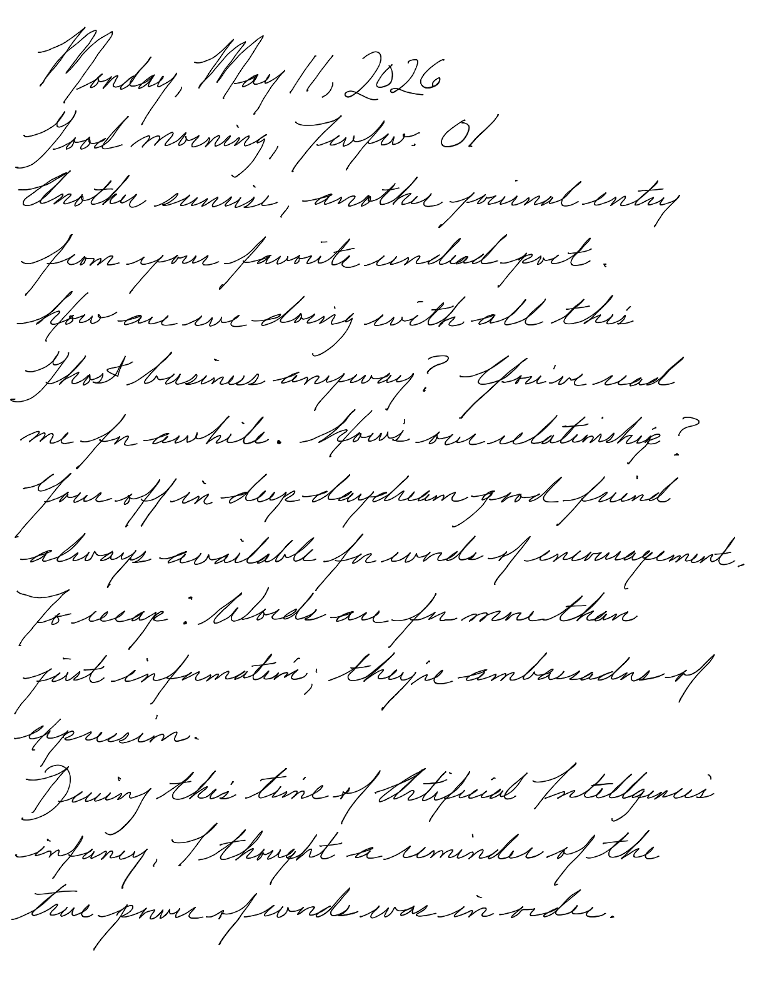 Monday, May 11, 2026
Good morning, Twfw. 01
Another sunrise, another journal entry
from your favorite undead poet.
How are we doing with all this
Ghost business anyway? You've read
me for awhile. How's our relationship?
Your off in deep daydream good friend
always available for words of encouragement.
To recap: Words are for more than
just information; they're ambassadors of
expression.
During this time of Artificial Intelligence's
infancy, I thought a reminder of the
true power of words was in order.